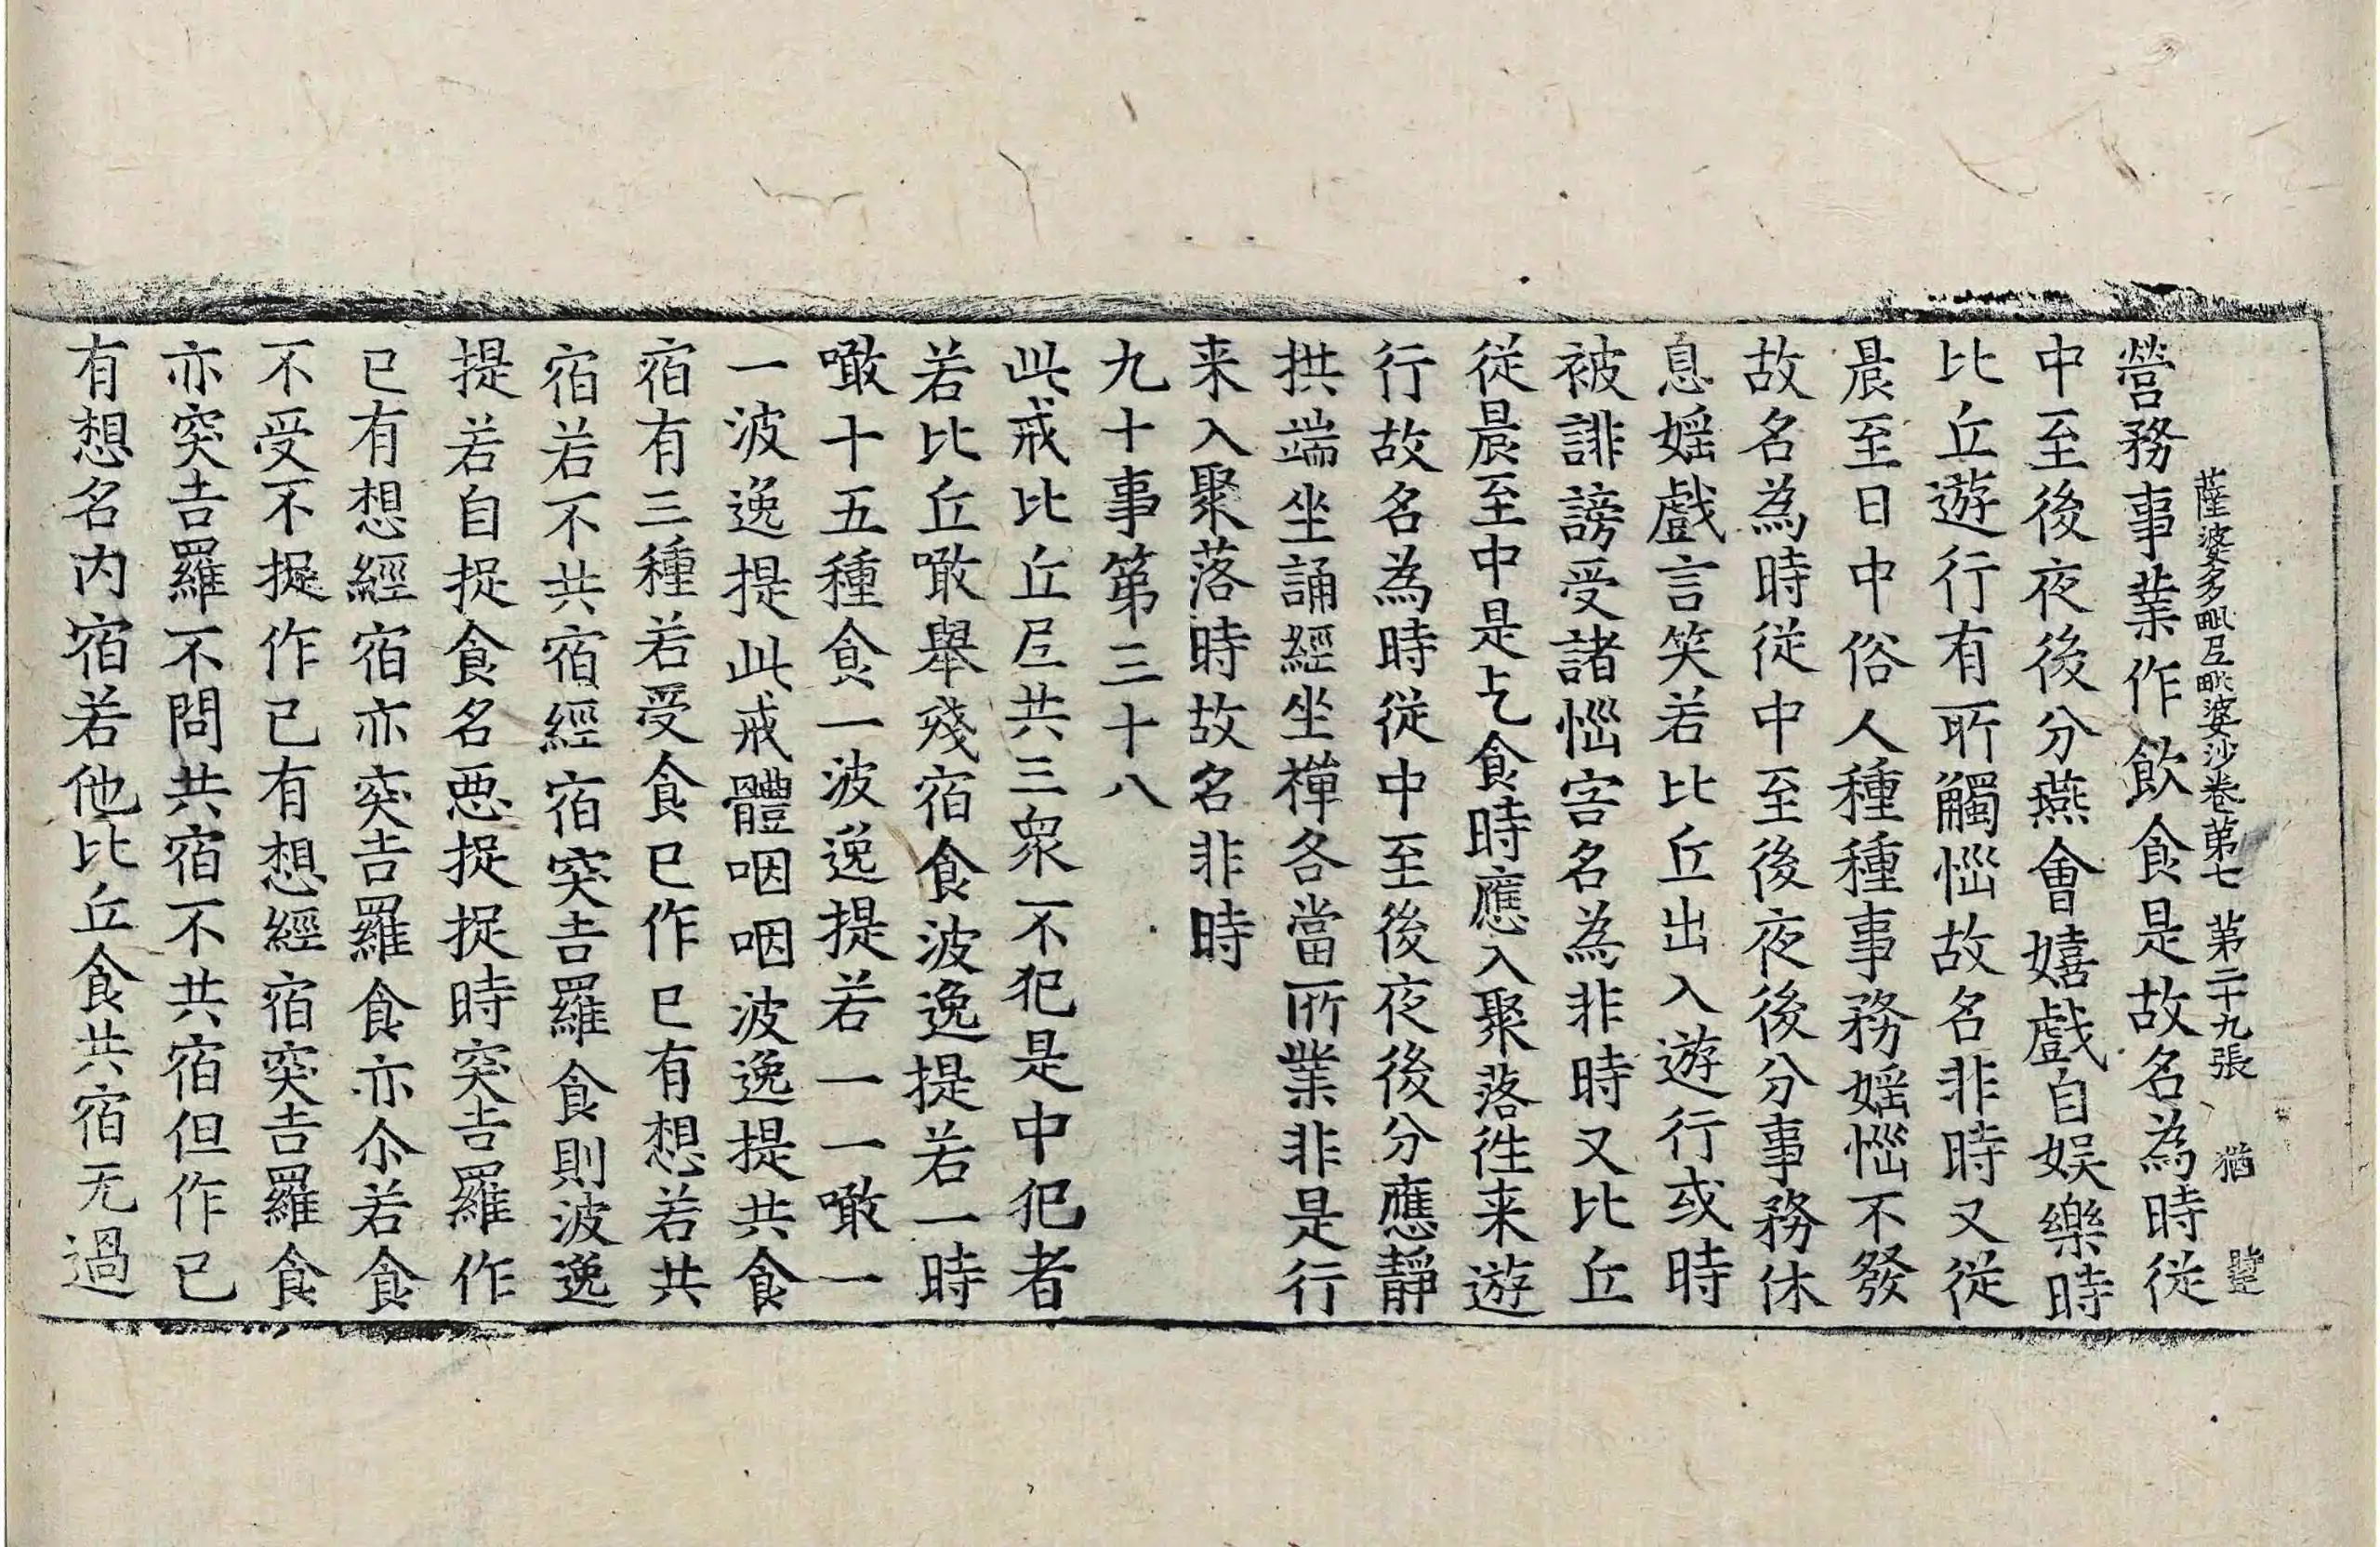 營務事業作飲食是故名為時從
薩婆多毗尼毗婆沙卷第七 第二十九張 猶
中至後夜後分燕會嬉戲自娛樂時
比丘遊行有所觸惱故名非時又從
晨至日中俗人種種事務婬惱不發
故名為時從中至後夜後分事務休
息婬戲言笑若比丘出入遊行或時
被誹謗受諸惱害名為非時又比丘
從晨至中是乞食時應入聚落往来遊
行故名為時從中至後夜後分應靜
拱端坐誦經坐禅各當所業非是行
来入聚落時故名非時
九十事第三十八
此戒比丘尼共三衆不犯是中犯者
若比丘噉舉殘宿食波逸提若一時
噉十五種食一波逸提若一一噉一
一波逸提此戒體咽咽波逸提共食
宿有三種若受食已作已有想若共
宿若不共宿經宿突吉羅食則波逸
提若自捉食名惡捉捉時突吉羅作
已有想經宿亦突吉羅食亦尒若食
不受不捉作已有想經宿突吉羅食
亦突吉羅不問共宿不共宿但作已
有想名内宿若他比丘食共宿无過